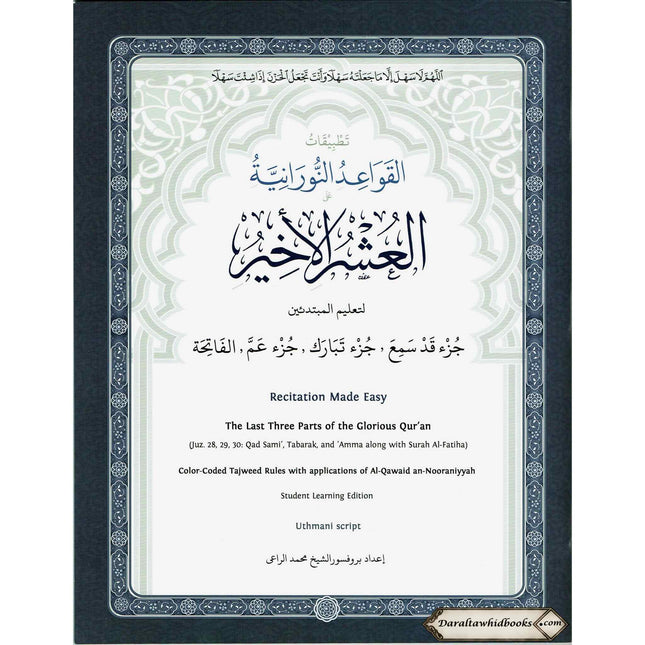 اللَّهُمَّ لَا سَهْلَ إِلَّا مَا جَعَلْتَهُ سَهْلًا وَأَنْتَ تَجْعَلُ الْحَزْنَ إِذَا شِئْتَ سَهْلًا
تَطْبِيقَاتُ
القَوَاعِدُ النُّورَانِيَّةُ
عَلَى
العُشْرُ الأَخِيرُ
لتعليم المبتدئين
جُزْء قَدْ سَمِعَ , جُزْء تَبَارَك , جُزْء عَمَّ , الفَاتِحَة
Recitation Made Easy
The Last Three Parts of the Glorious Qur'an
(Juz. 28, 29, 30: Qad Sami', Tabarak, and 'Amma along with Surah Al-Fatiha)
Color-Coded Tajweed Rules with applications of Al-Qawaid an-Nooraniyyah
Student Learning Edition
Uthmani script
إعداد بروفسور الشيخ محمد الراعى
Daraltawhidbooks.com